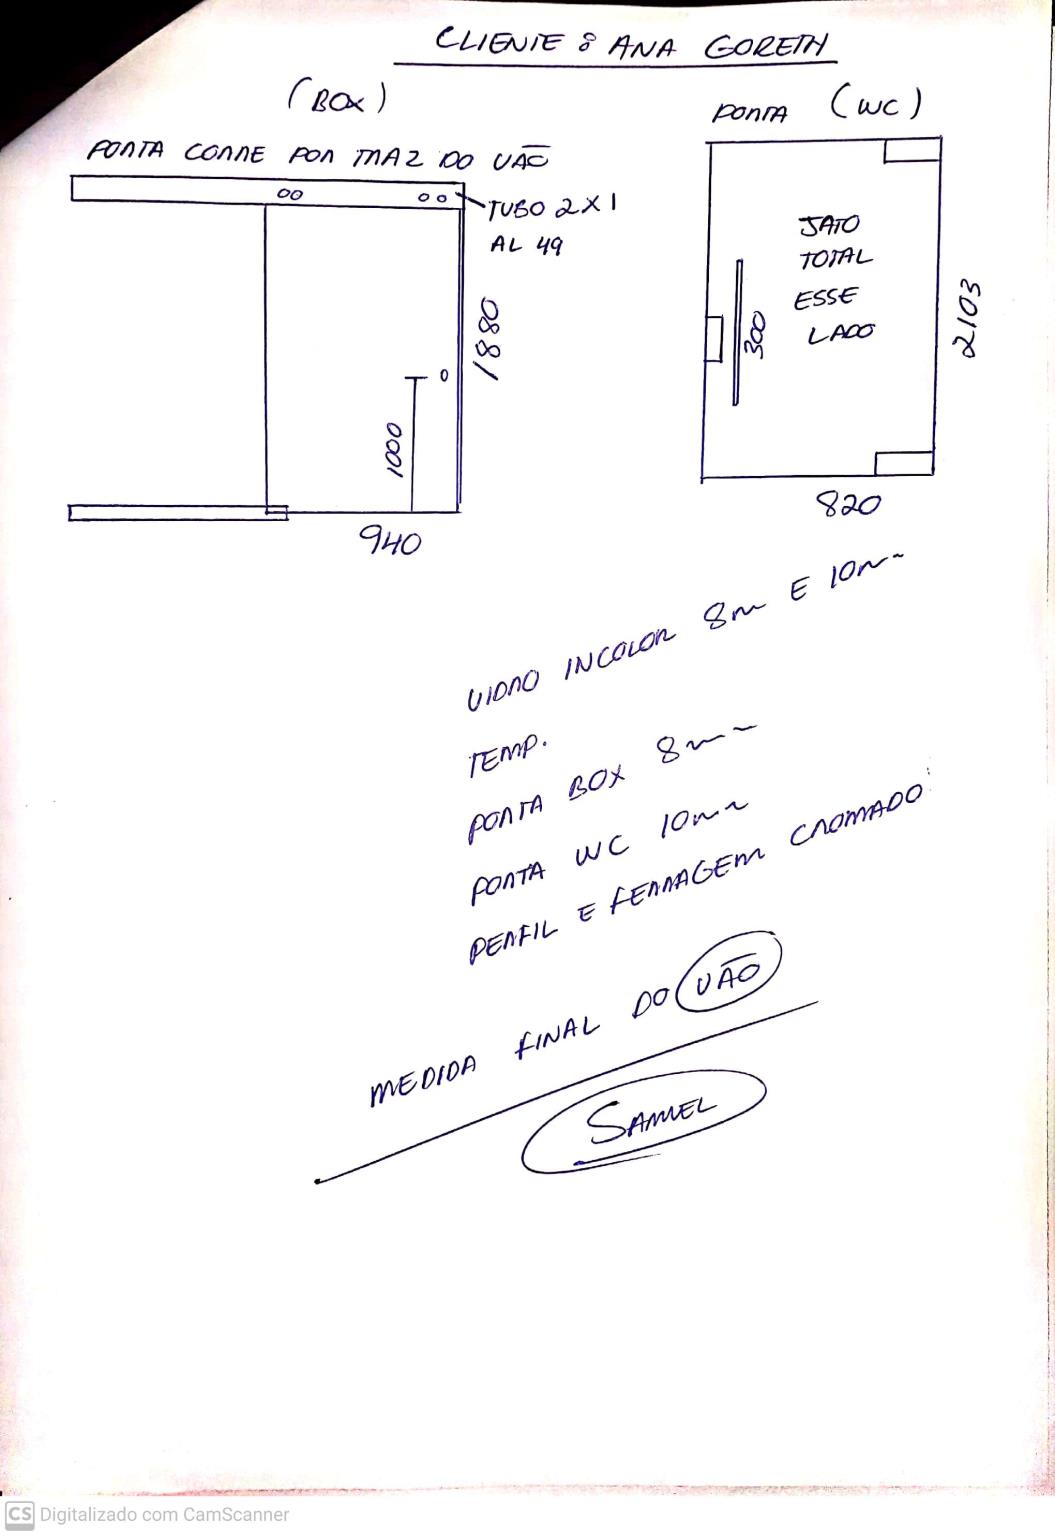 CLIENTE : ANA GORETH
(BOX)
PORTA CORRE POR TRAZ DO VÃO
TUBO 2X1
AL 49
1880
1000
940
PORTA (WC)
JATO
TOTAL
ESSE
LADO
300
2103
820
VIDRO INCOLOR 8mm E 10mm
TEMP.
PORTA BOX 8mm
PORTA WC 10mm
PERFIL E FERRAGEM CROMADO
MEDIDA FINAL DO VÃO
SAMUEL
CS Digitalizado com CamScanner